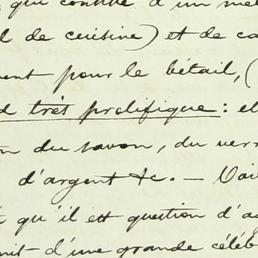 qui contie d'un me
l de cuisine) et de ca
ent pour le bétail, (
d très prolifique: el
n du savon, du verr
d'argent &c. — Voi
qu'il est question d'a
nit d'une grande céléb